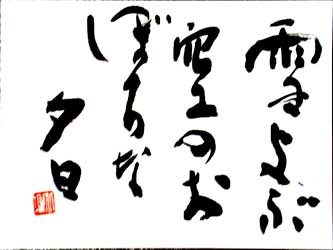 雪をよぶ
空のお
ぼろな
夕日